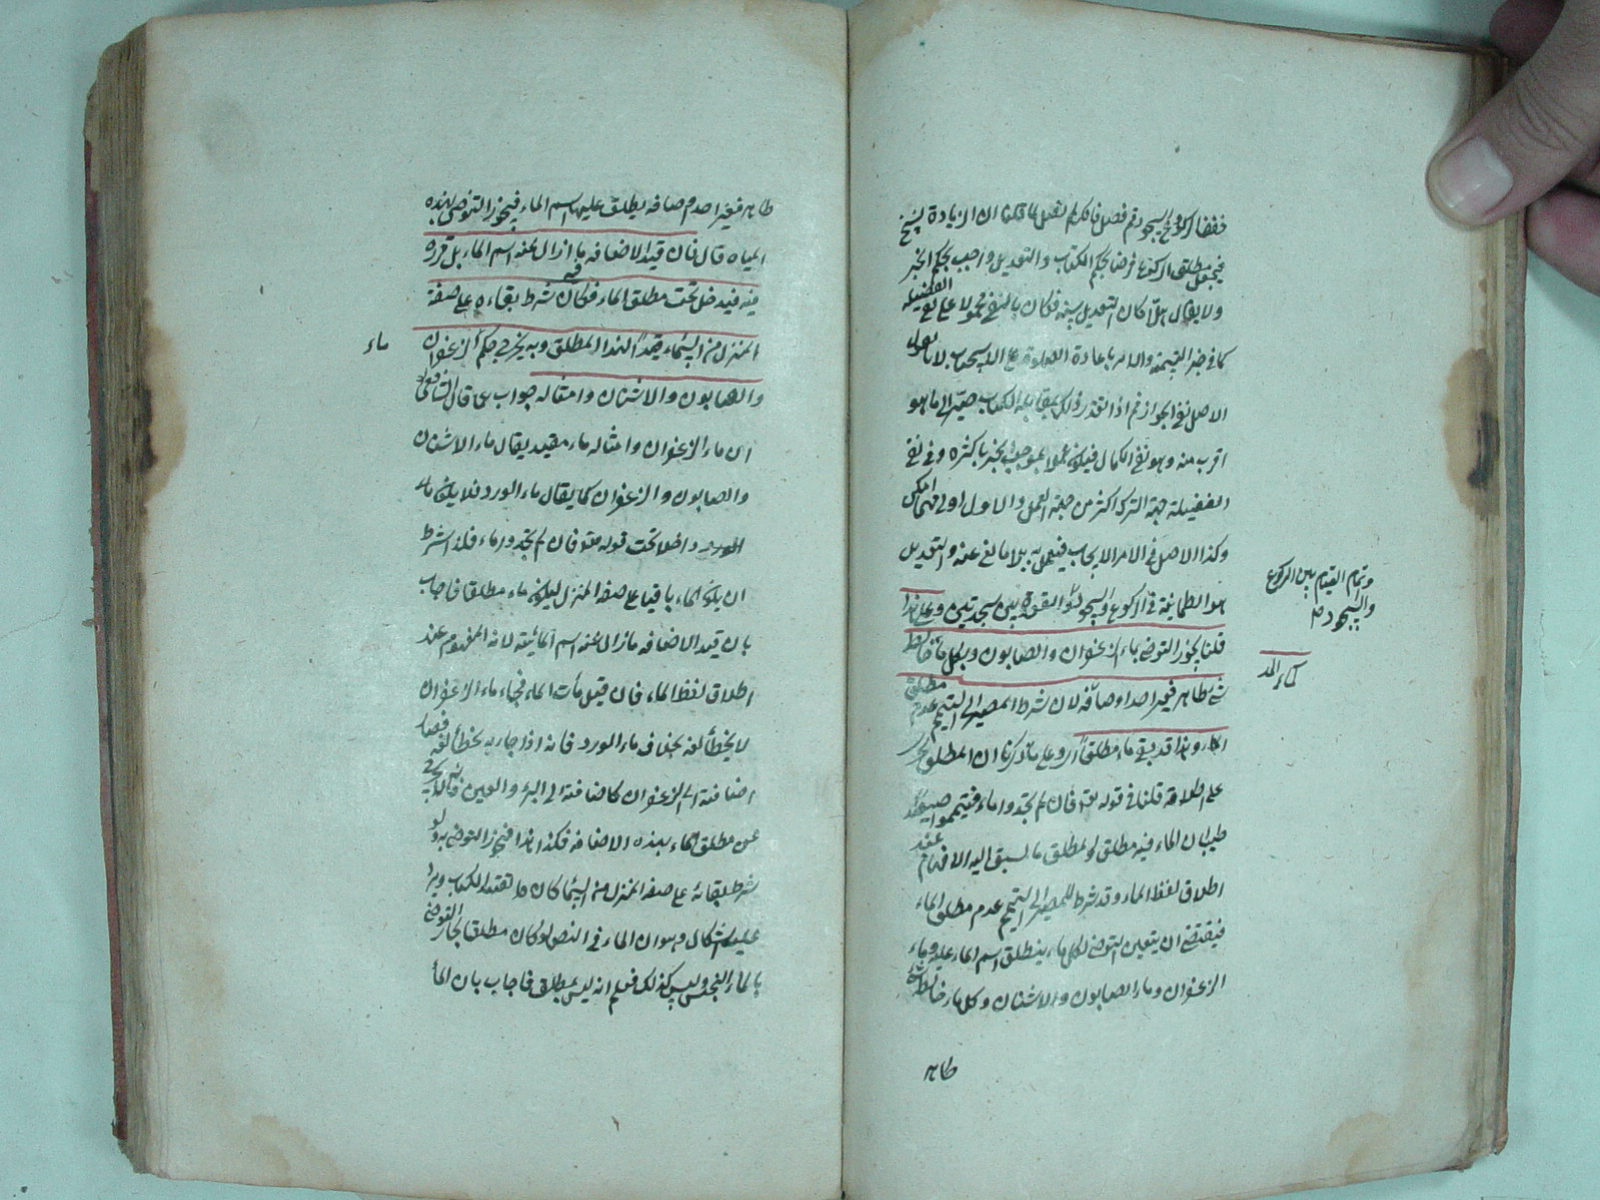 خفضا كركوع السجود ثم فصل فان لم تفعل لما قلنا ان الزيادة نسخ
فيجعل مطلق الركوع فرضا بحكم الكتاب والتعديل واجب بحكم الخبر
ولا يقال هلا كان التعديل سنة فكان بالنفي محمولا على نفي الفضيلة
كما في خبر التسمية والامر باعادة الصلوة على الاستحباب لانا نقول
الاصل نفي الجواز ثم اذا تعذر ذلك بمقابلة الكتاب صير الى ما هو
اقرب منه وهو نفي الكمال فيكون عملا بموجب الخبر باكثره وفي نفي
الفضيلة جهة الترك اكثر من جهة العمل والاول اولى فيما امكن
وكذا الاصل في الامر الايجاب فيعمل به بلا مانع عنه والتعديل
هو الطمانينة في الركوع والسجود والقعدة بين سجدتين وعلى هذا
وتمام القيام بين الركوع
والسجود صح
قلنا يجوز التوضي بماء الزعفران والصابون وبكل ماء خالطه
كماء المد
شيء طاهر فغير احد اوصافه لان شرط المصير الى التيمم عدم مطلق
الماء وهذا قد بقي ماء مطلقا اي وعلى ما ذكرنا ان المطلق يجري
على اطلاقه قلنا في قوله تعالى فان لم تجدوا ماء فتيمموا صعيدا
طيبا ان الماء فيه مطلق والمطلق ما يسبق اليه الافهام عند
اطلاق لفظ الماء وقد شرط للمصير الى التيمم عدم مطلق الماء
فيقتضي ان يتعين التوضي لكل ماء ينطلق اسم الماء عليه وماء
الزعفران وماء الصابون والاشنان وكل ماء خالطه شيء
طاهر
طاهر فغير احد اوصافه يطلق عليها اسم الماء فيجوز التوضي بهذه
المياه قال فان قيد الاضافة ما ازال عنه اسم الماء بل قرره
فيه فيدخل تحت مطلق الماء فكان شرط بقاءه على صفة
المنزل من السماء قيدا لهذا المطلق وبه يخرج حكم الزعفران
ماء
والصابون والاشنان وامثاله جواب عما قال الشافعي
ان ماء الزعفران وامثاله ماء مقيد يقال ماء الاشنان
والصابون والزعفران كما يقال ماء الورد فلا يكون ماء
الورد داخلا تحت قوله تعالى فان لم تجدوا ماء فلذا شرط
ان يكون الماء باقيا على صفة المنزل ليكون ماء مطلقا فاجاب
بان قيد الاضافة ما زال عنه اسم المائية لانه المفهوم عند
اطلاق لفظ الماء فان قيل هات الماء فجاء ماء الزعفران
لا يخطأ لغة بخلاف ماء الورد فانه اذا جاء به يخطأ لغة فصار
اضافته الى الزعفران كاضافته الى البئر والعين فكما لا يخرج
عن مطلق الماء بهذه الاضافة فكذا هذا فيجوز التوضي به ولو
شرط بقائه على صفة المنزل من السماء كان هذا تقييدا لكتاب ويرد
عليه اشكال وهو ان الماء في النص لو كان مطلقا لجاز التوضي
بالماء النجس وليس كذلك فعلم انه ليس بمطلق فاجاب بان الماء